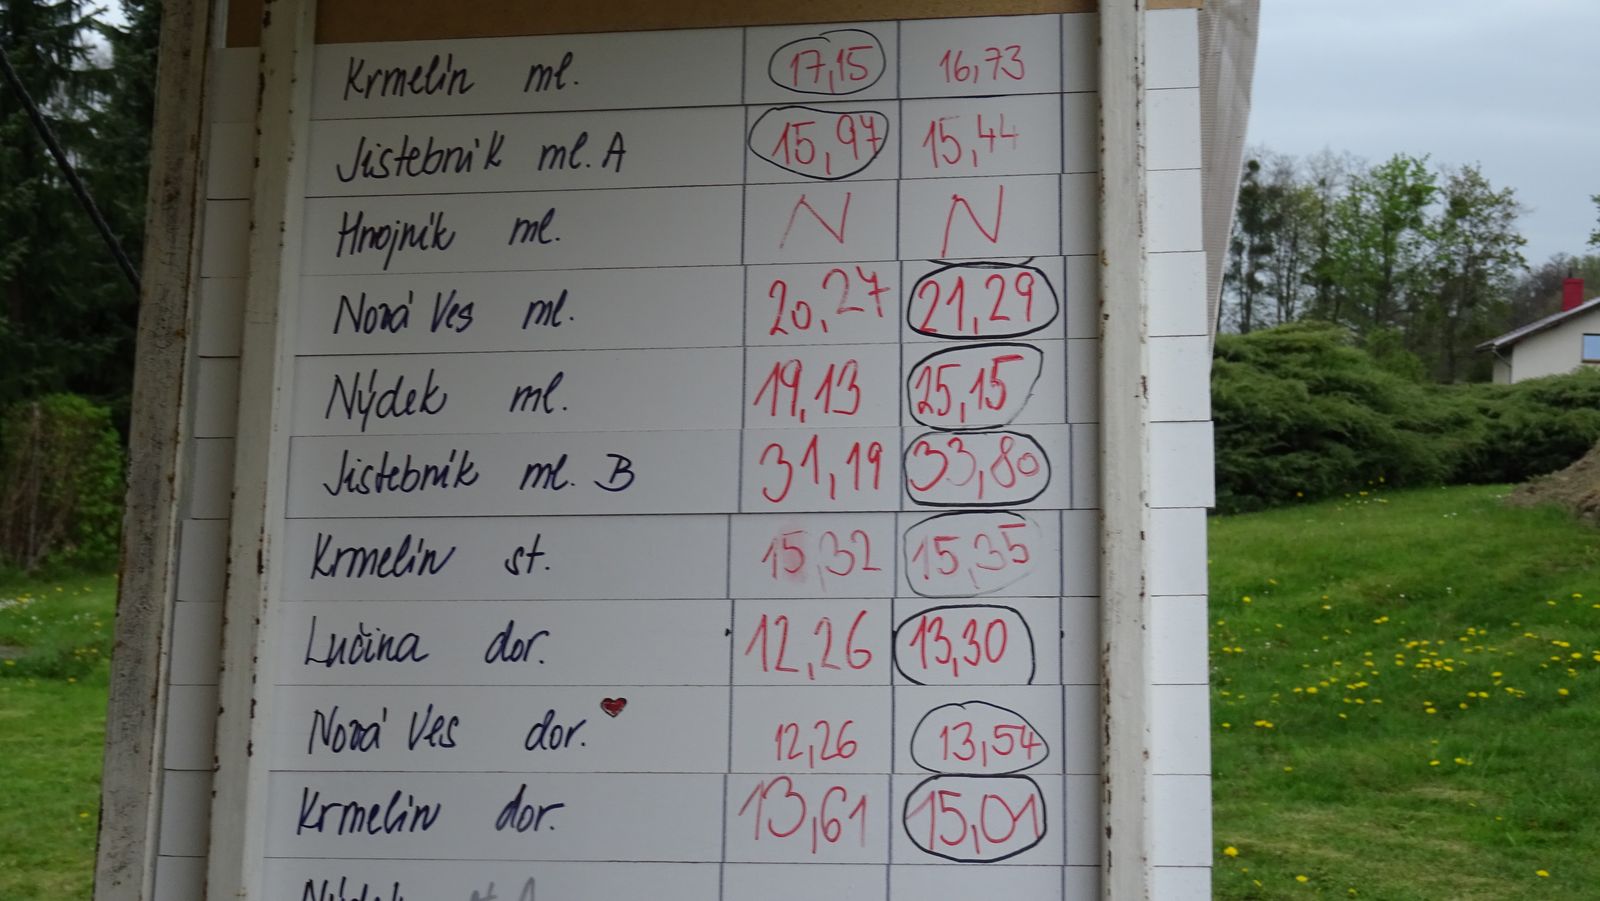 Krmelín ml. 17,15 16,73
Jistebník ml. A 15,97 15,44
Hnojník ml. N N
Nová Ves ml. 20,27 21,29
Nýdek ml. 19,13 25,15
Jistebník ml. B 31,19 33,80
Krmelín st. 15,32 15,35
Lučina dor. 12,26 13,30
Nová Ves dor. 12,26 13,54
Krmelín dor. 13,61 15,01
Nýdek